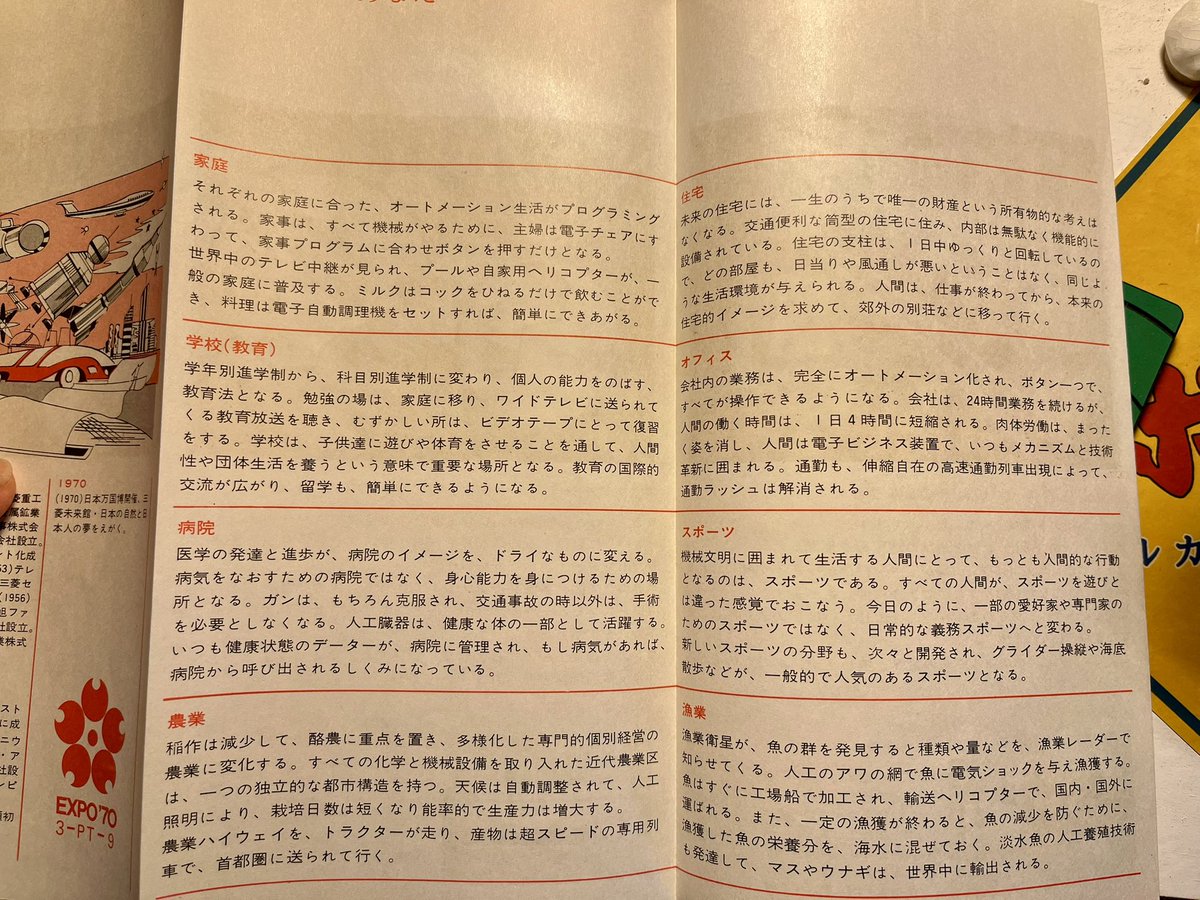 家庭
それぞれの家庭に合った、オートメーション生活がプログラミング
される。家事は、すべて機械がやるために、主婦は電子チェアにす
わって、家事プログラムに合わせボタンを押すだけとなる。
世界中のテレビ中継が見られ、プールや自家用ヘリコプターが、一
般の家庭に普及する。ミルクはコックをひねるだけで飲むことがで
き、料理は電子自動調理機をセットすれば、簡単にできあがる。
学校(教育)
学年別進学制から、科目別進学制に変わり、個人の能力をのばす、
教育法となる。勉強の場は、家庭に移り、ワイドテレビに送られて
くる教育放送を聴き、むずかしい所は、ビデオテープにとって復習
をする。学校は、子供達に遊びや体育をさせることを通して、人間
性や団体生活を養うという意味で重要な場所となる。教育の国際的
交流が広がり、留学も、簡単にできるようになる。
病院
医学の発達と進歩が、病院のイメージを、ドライなものに変える。
病気をなおすための病院ではなく、身心能力を身につけるための場
所となる。ガンは、もちろん克服され、交通事故の時以外は、手術
を必要としなくなる。人工臓器は、健康な体の一部として活躍する。
いつも健康状態のデーターが、病院に管理され、もし病気があれば、
病院から呼び出されるしくみになっている。
農業
稲作は減少して、酪農に重点を置き、多様化した専門的個別経営の
農業に変化する。すべての化学と機械設備を取り入れた近代農業区
は、一つの独立的な都市構造を持つ。天候は自動調整されて、人工
照明により、栽培日数は短くなり能率的で生産力は増大する。
農業ハイウェイを、トラクターが走り、産物は超スピードの専用列
車で、首都圏に送られて行く。
住宅
未来の住宅には、一生のうちで唯一の財産という所有物的な考えは
なくなる。交通便利な筒型の住宅に住み、内部は無駄なく機能的に
設備されている。住宅の支柱は、1日中ゆっくりと回転しているの
で、どの部屋も、日当りや風通しが悪いということはなく、同じよ
うな生活環境が与えられる。人間は、仕事が終わってから、本来の
住宅的イメージを求めて、郊外の別荘などに移って行く。
オフィス
会社内の業務は、完全にオートメーション化され、ボタン一つで、
すべてが操作できるようになる。会社は、24時間業務を続けるが、
人間の働く時間は、1日4時間に短縮される。肉体労働は、まった
く姿を消し、人間は電子ビジネス装置で、いつもメカニズムと技術
革新に囲まれる。通勤も、伸縮自在の高速通勤列車出現によって、
通勤ラッシュは解消される。
スポーツ
機械文明に囲まれて生活する人間にとって、もっとも人間的な行動
となるのは、スポーツである。すべての人間が、スポーツを遊びと
は違った感覚でおこなう。今日のように、一部の愛好家や専門家の
ためのスポーツではなく、日常的な義務スポーツへと変わる。
新しいスポーツの分野も、次々と開発され、グライダー操縦や海底
散歩などが、一般的で人気のあるスポーツとなる。
漁業
漁業衛星が、魚の群を発見すると種類や量などを、漁業レーダーで
知らせてくる。人工のアワの網で魚に電気ショックを与え漁獲する。
魚はすぐに工場船で加工され、輸送ヘリコプターで、国内・国外に
運ばれる。また、一定の漁獲が終わると、魚の減少を防ぐために、
漁獲した魚の栄養分を、海水に混ぜておく。淡水魚の人工養殖技術
も発達して、マスやウナギは、世界中に輸出される。
1970
(1970)日本万国博開催、三
菱未来館・日本の自然と日
本人の夢をえがく。
菱重工
属鉱業
事株式会
会社設立。
ント化成
53)テレ
三菱セ
(1956)
旭ファ
社設立。
業株式
スト
に成
ニウ
・ア
社設
レビ
頭初
EXPO'70
3-PT-9
ル カ